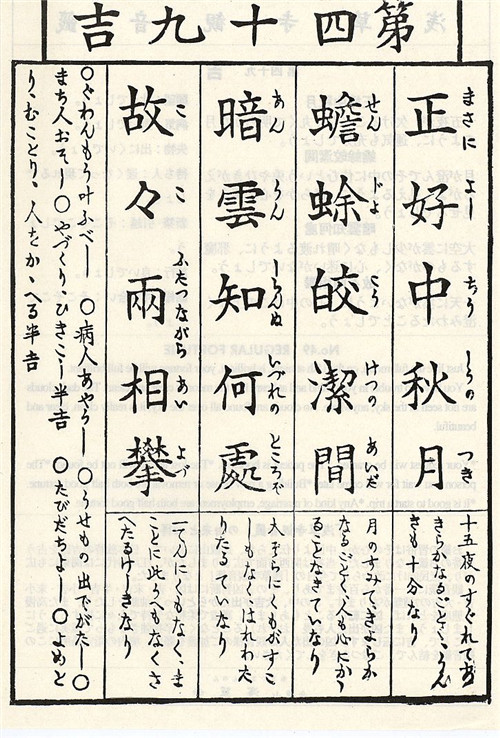 第四十九吉
正好中秋月
まさに よし ちう しうの つき
十五夜のすぐれてあ
きらかなるごとく、うん
きも十分なり
蟾蜍皎潔間
せん じよ こう けつの あいだ
月のすみて、きよらか
なるごとく、人も心にかゝ
ることなきていなり
暗雲知何處
あん うん しらんぬ いづれの ところぞ
大ぞらにくもがすこ
しもなく、はれわた
りたるていなり
故々兩相攀
こ ふたつながら あい よづ
一てんにくもなく、ま
ことに此うへもなくさ
へたるけしきなり
○ぐわんもう叶ふべし ○病人あやうし ○うせもの出でがたし○
まち人おそし○やづくり、ひきこし半吉 ○たびだちよし ○よめと
り、むことり、人をかゝへる半吉